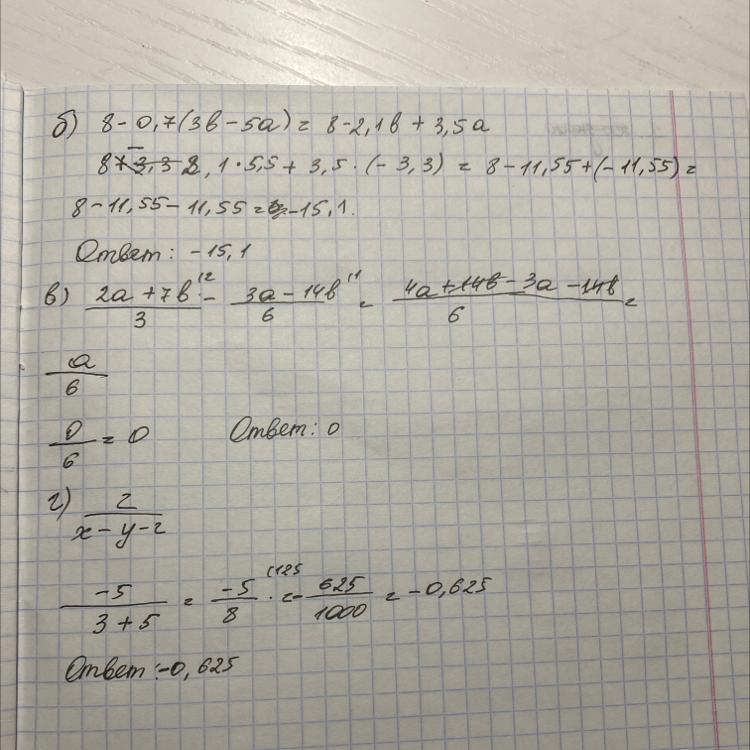 б) 8 - 0,7(3в - 5а) = 8 - 2,1в + 3,5а
8 - 2,1 · 5,5 + 3,5 · (- 3,3) = 8 - 11,55 + (- 11,55) =
8 - 11,55 - 11,55 = -15,1.
Ответ: -15,1
в) (2а + 7в)/3 - (3а - 14в)/6 = (4а + 14в - 3а - 14в)/6 =
а/6
0/6 = 0 Ответ: 0
г) z/(x - y - z)
-5/(3 + 5) = -5/8 · = -625/1000 = -0,625
Ответ: -0,625